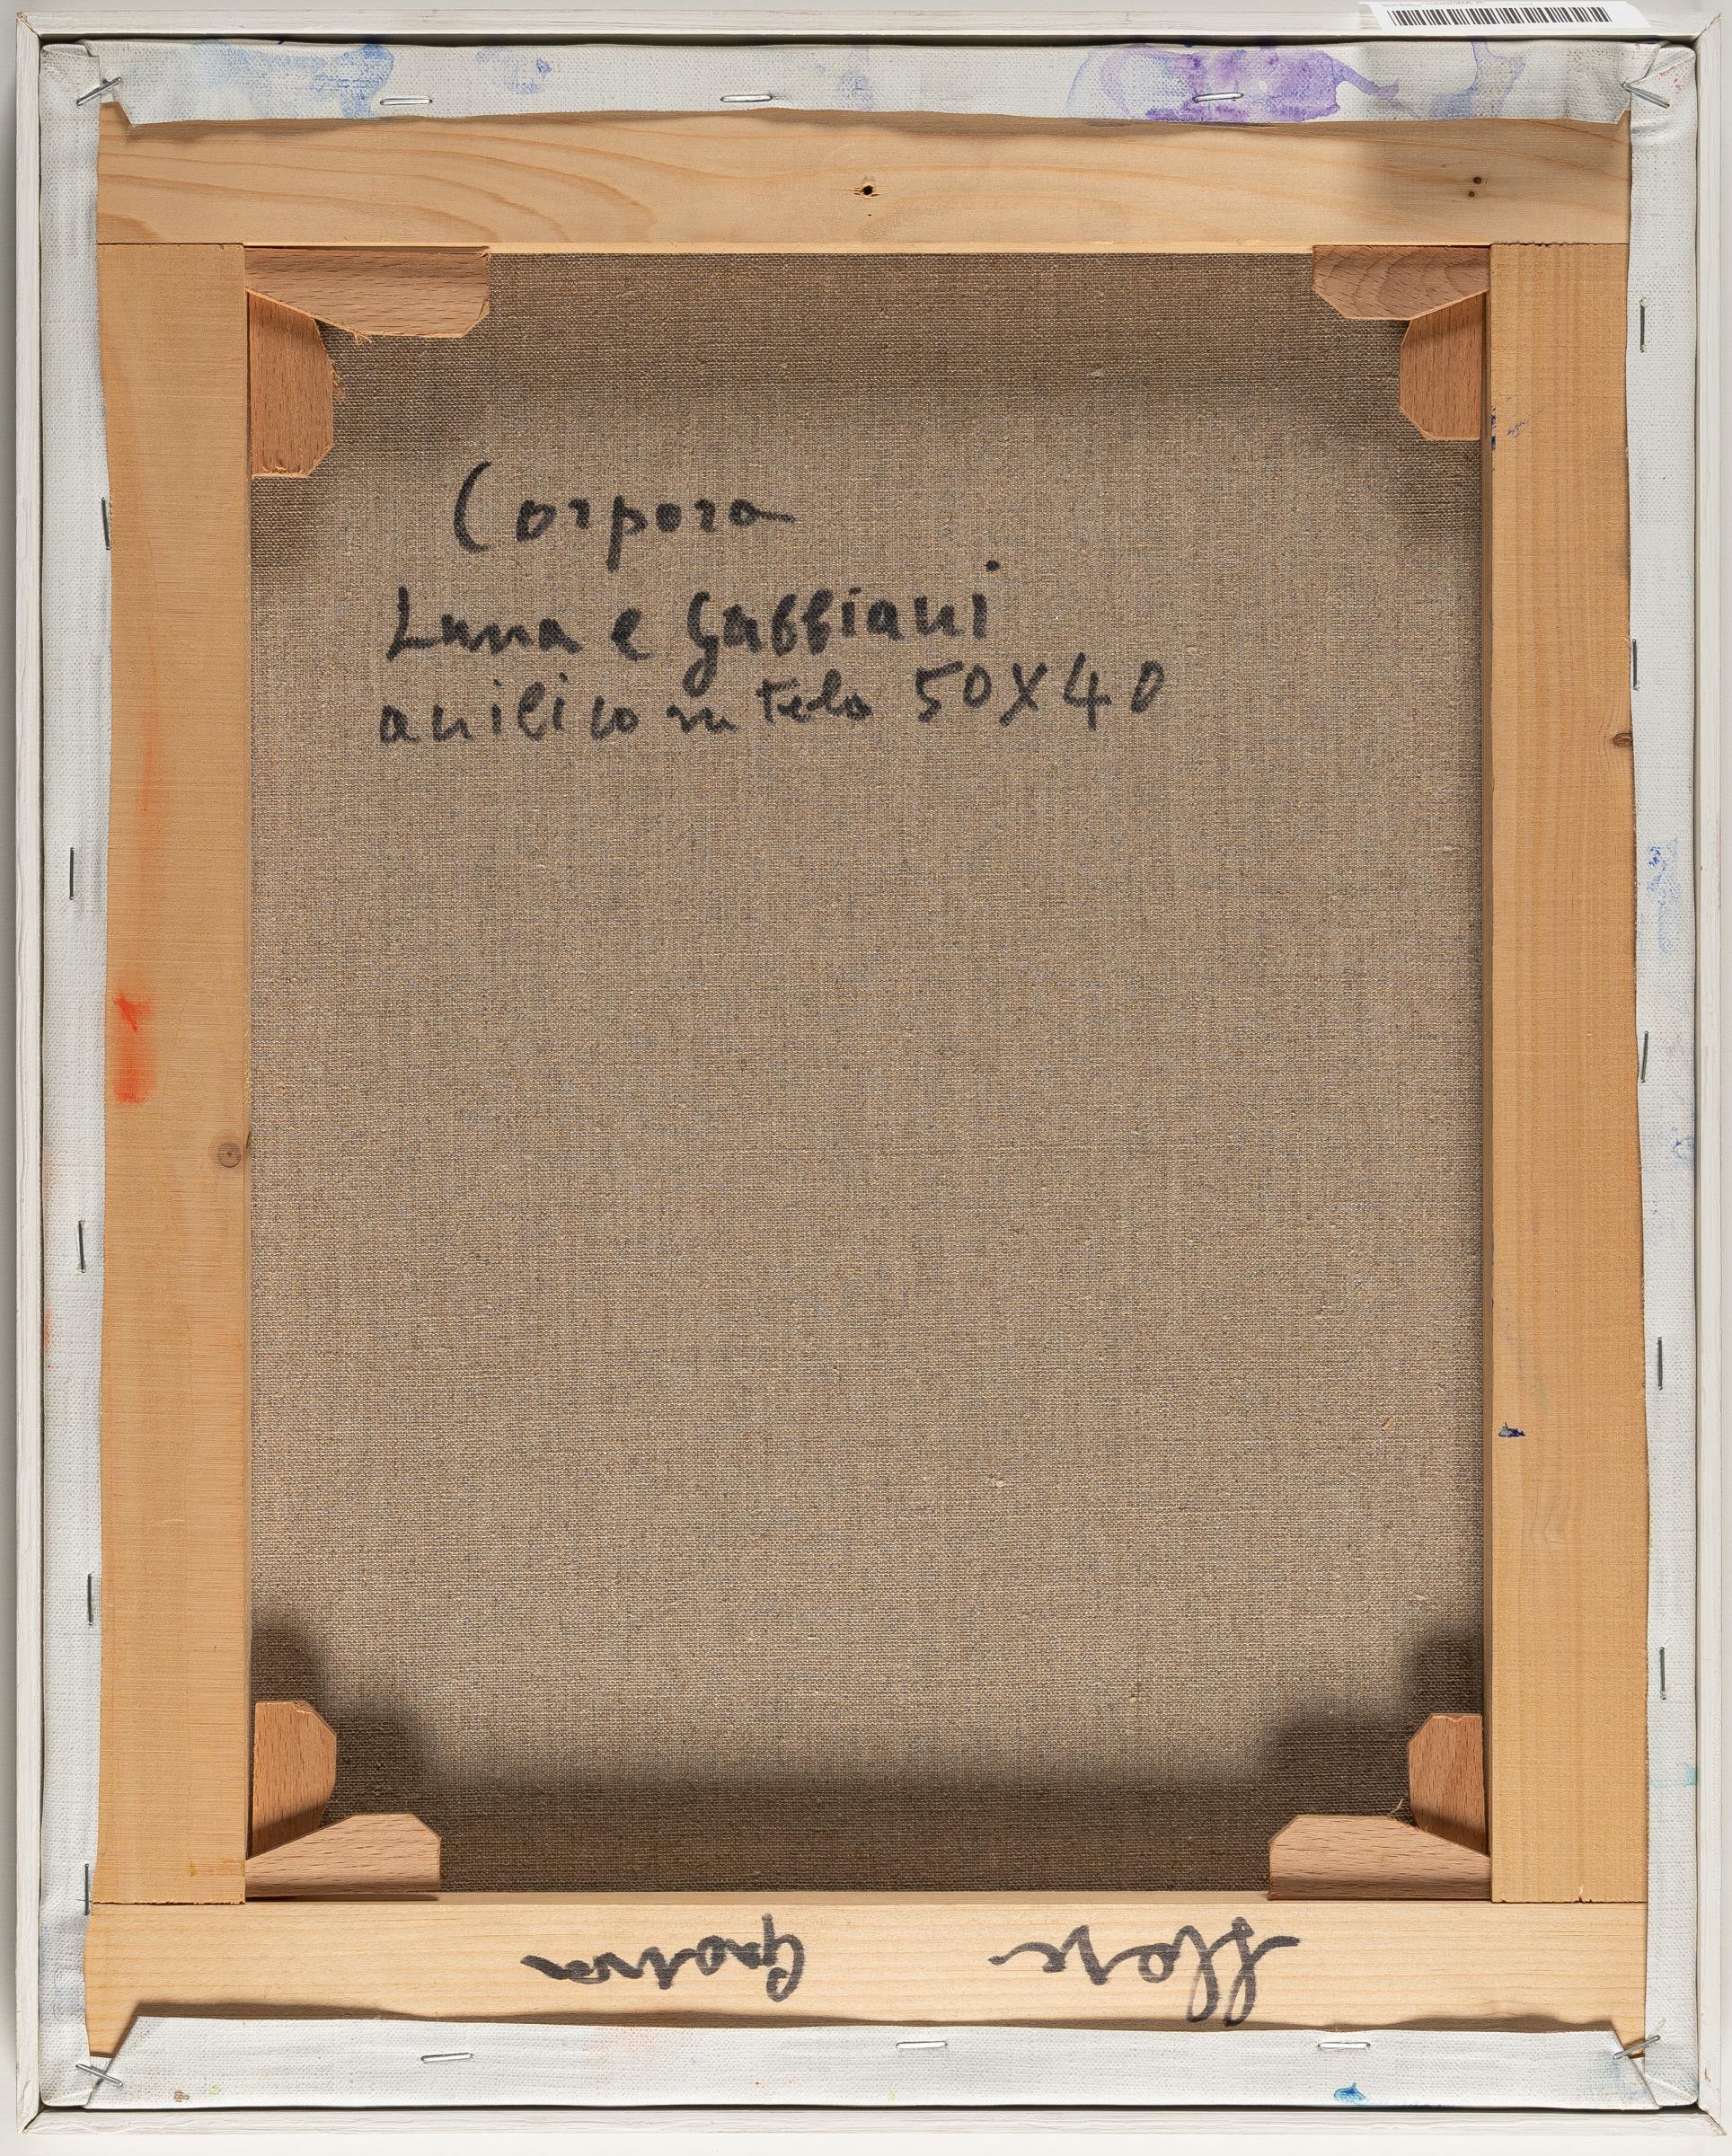 Corpora
Luna e Gabbiani
acrilico su tela 50X40